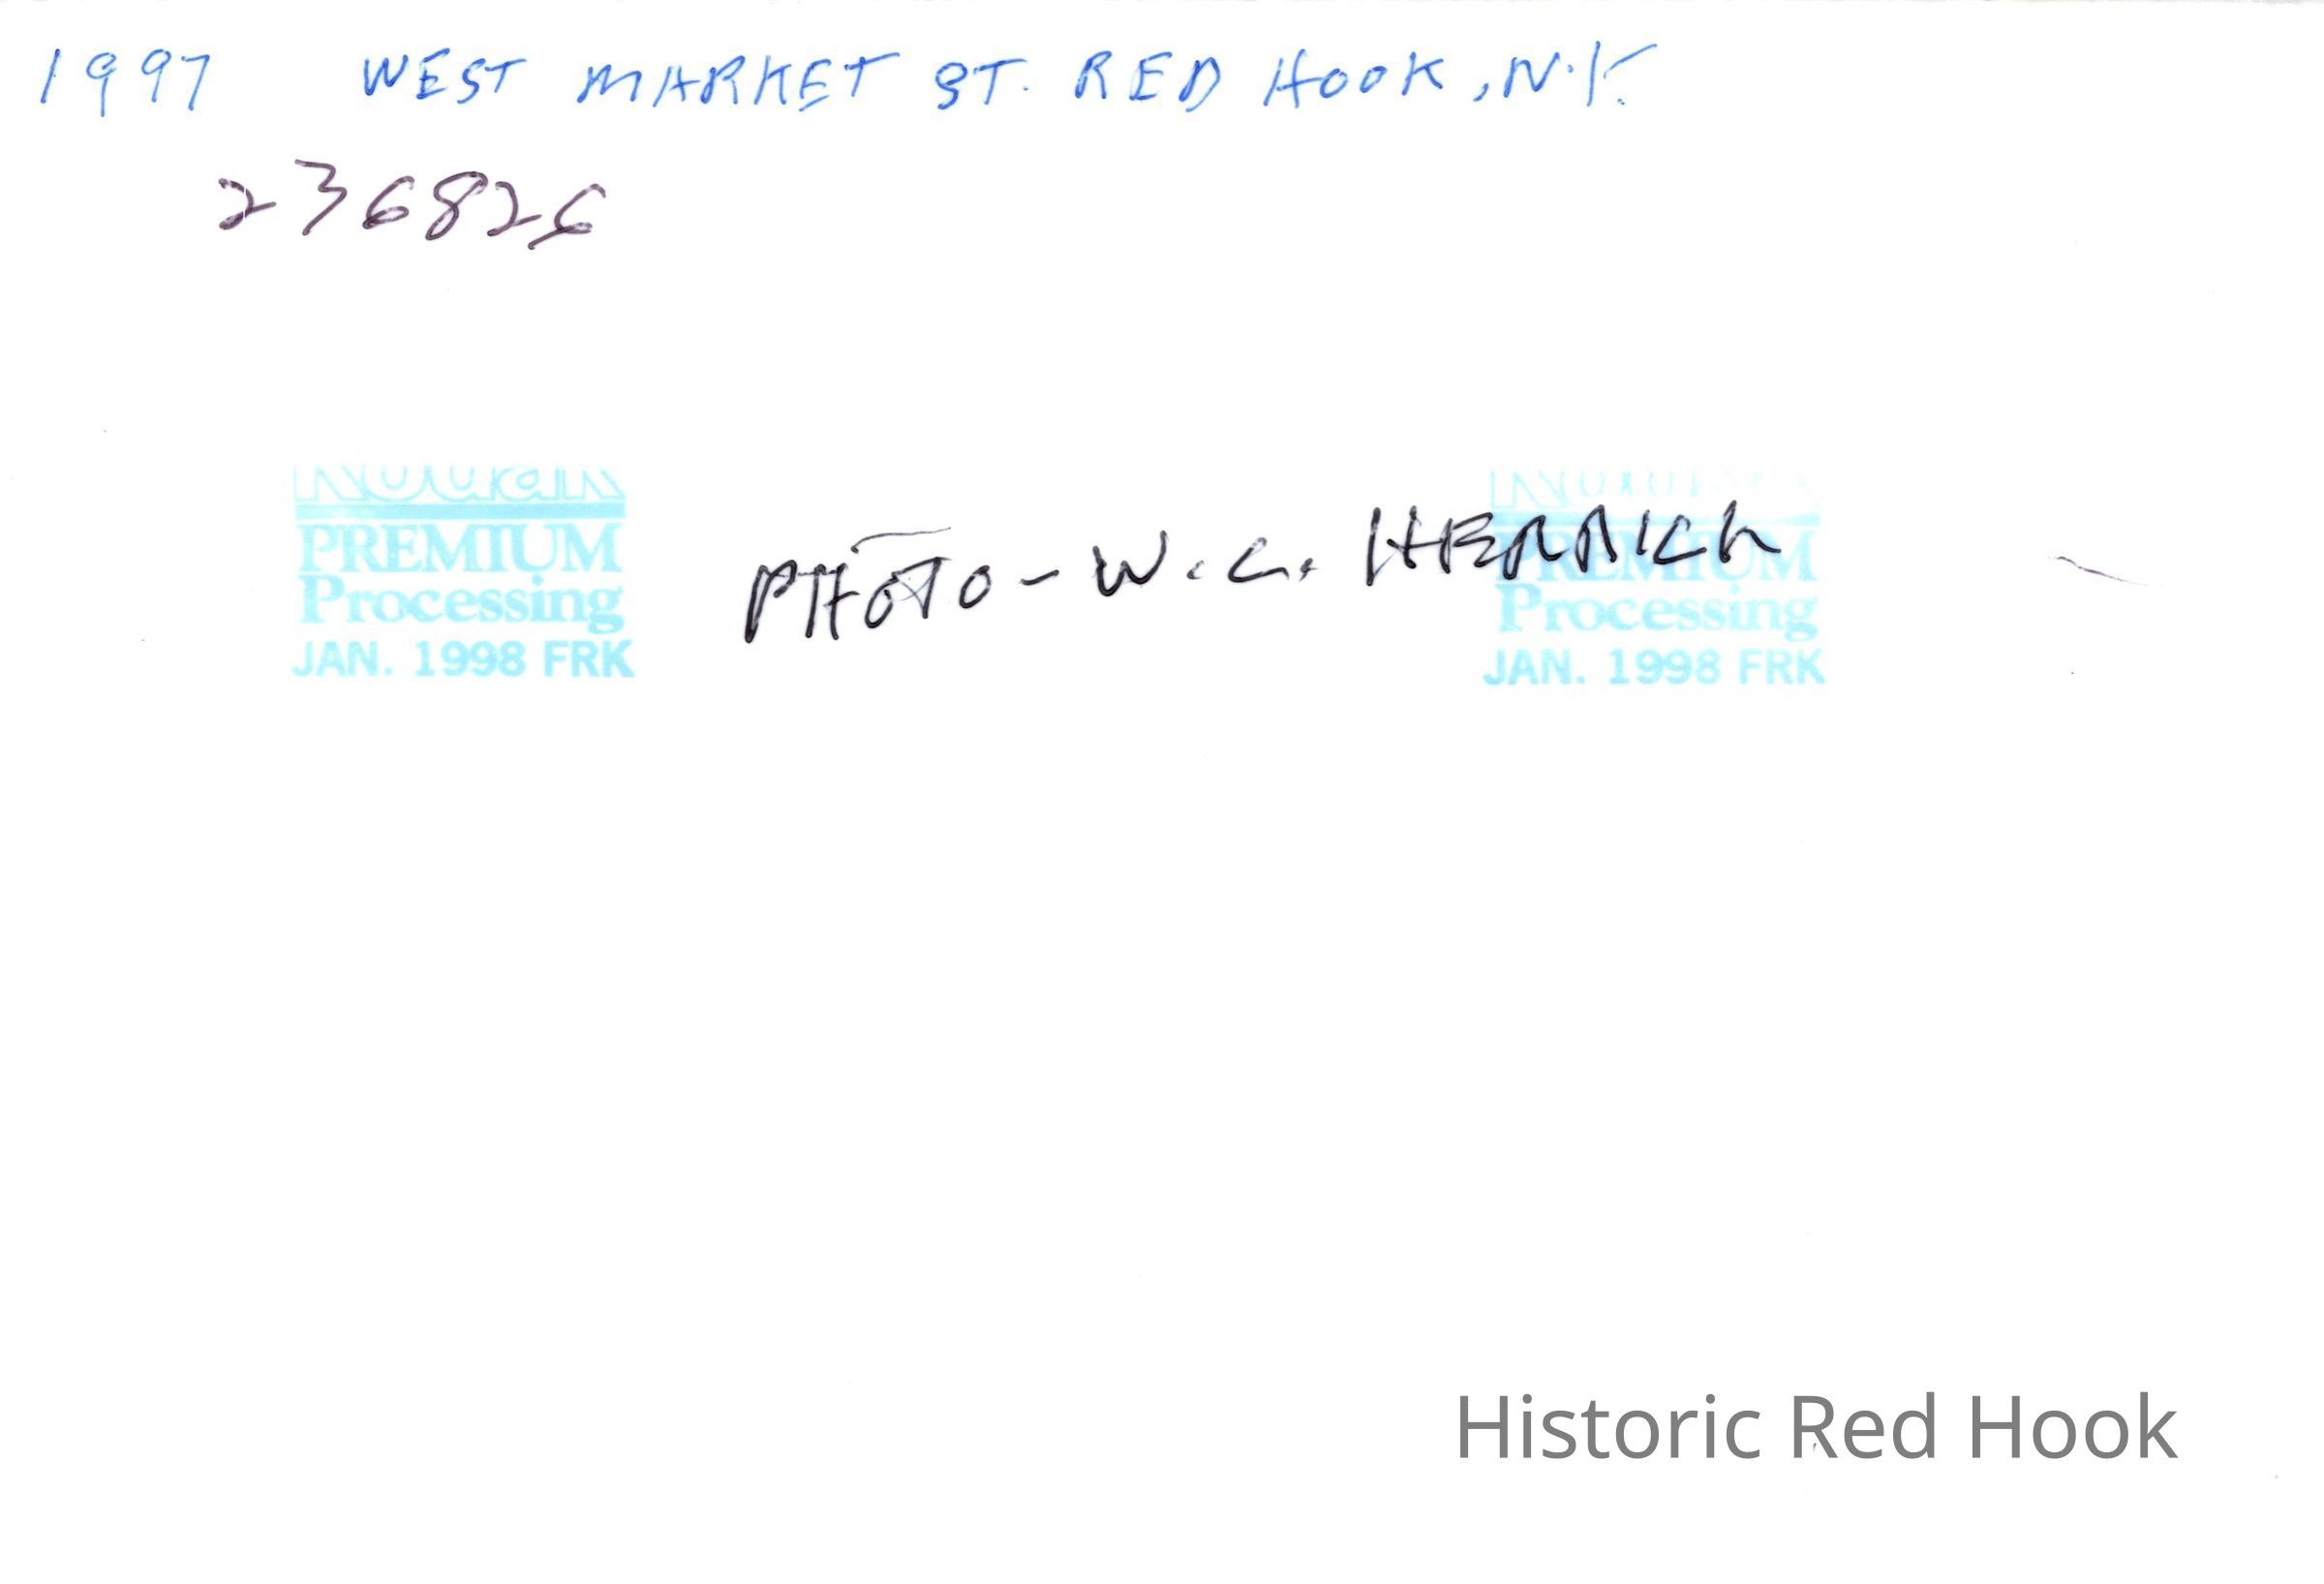 1997 WEST MARKET ST. RED HOOK, N.Y.
236826
Kodak
PREMIUM
Processing
JAN. 1998 FRK
PHOTO - W.C. HERRICK
Kodak
PREMIUM
Processing
JAN. 1998 FRK
Historic Red Hook